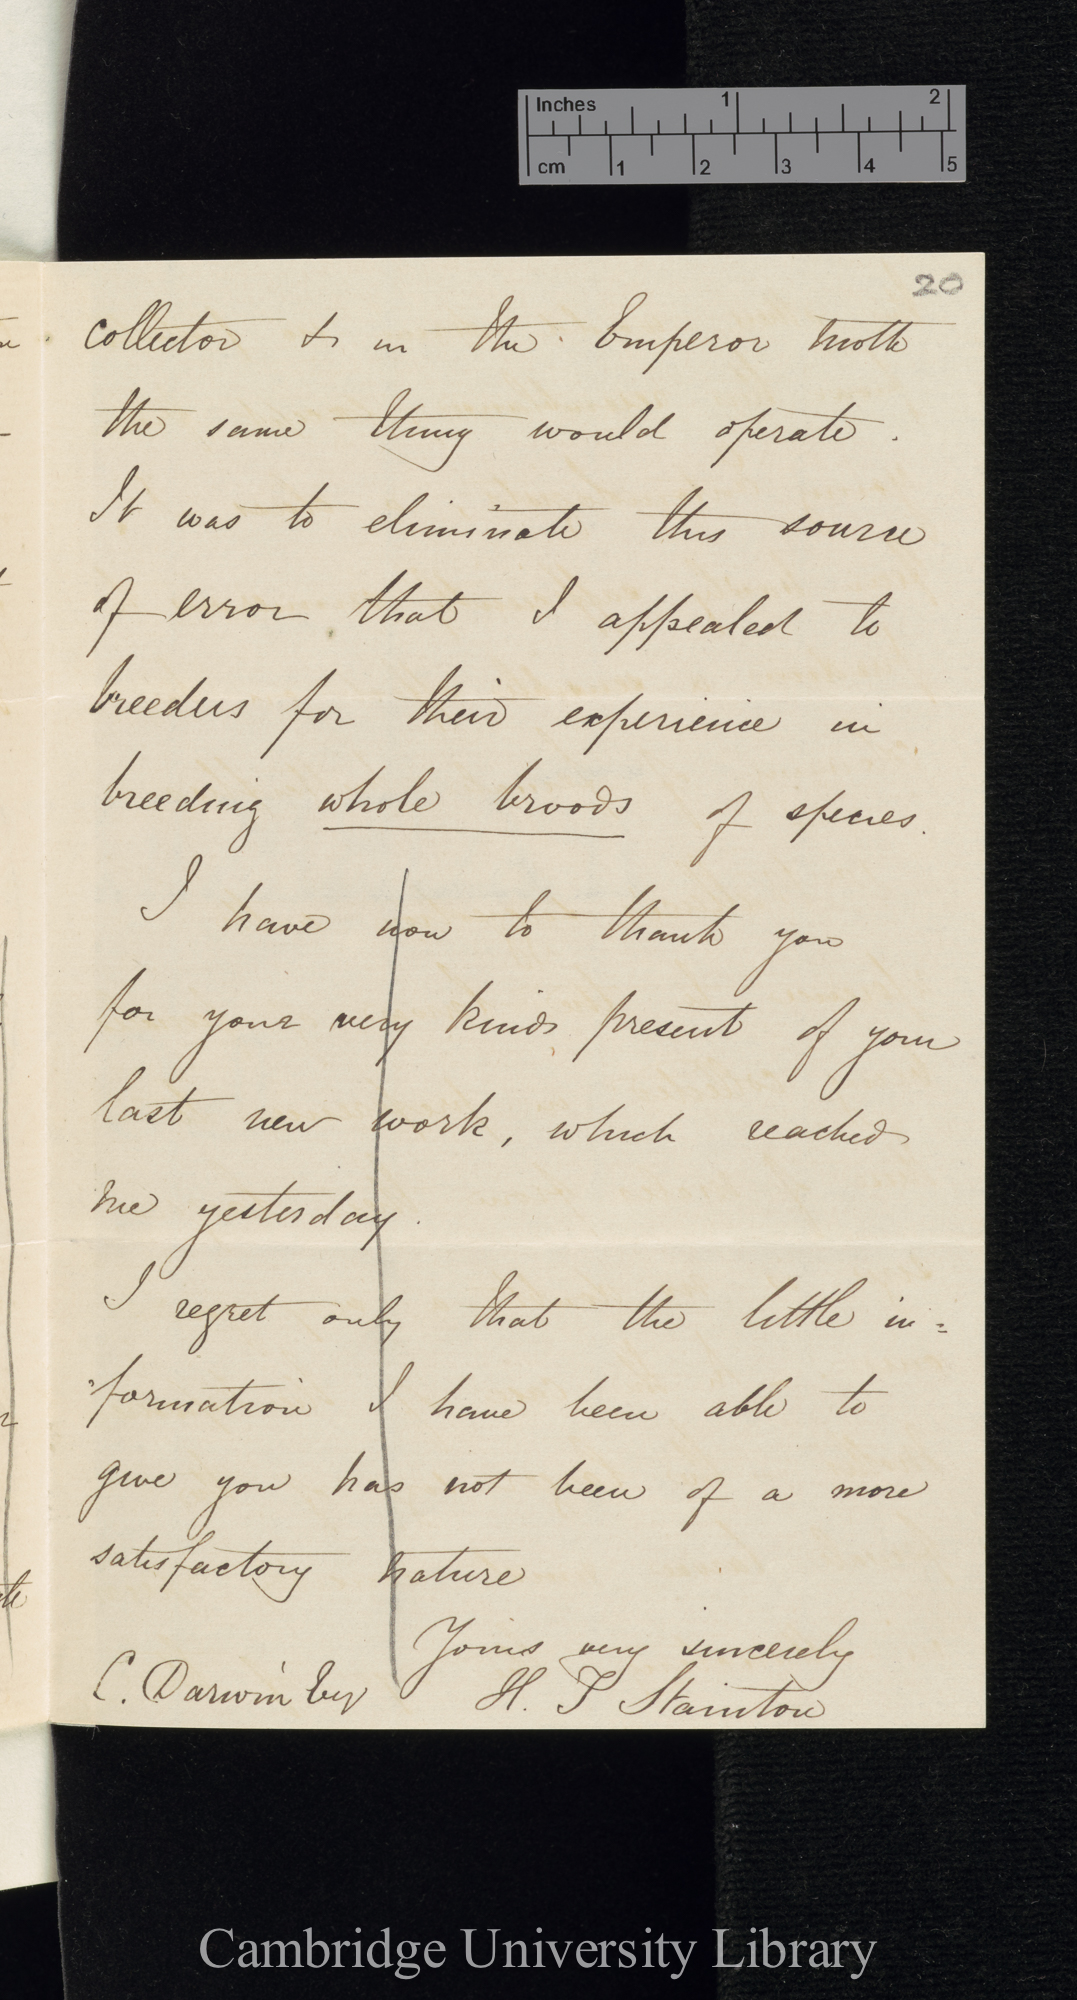 Inches 1 2
cm 1 2 3 4 5
20
collector & in the Emperor moth
the same thing would operate.
It was to eliminate this source
of error that I appealed to
breeders for their experience in
breeding whole broods of species.
I have now to thank you
for your very kind present of your
last new work, which reached
me yesterday.
I regret only that the little in=
"formation I have been able to
give you has not been of a more
satisfactory nature
Yours very sincerely
C. Darwin Esq H. T Stainton
Cambridge University Library